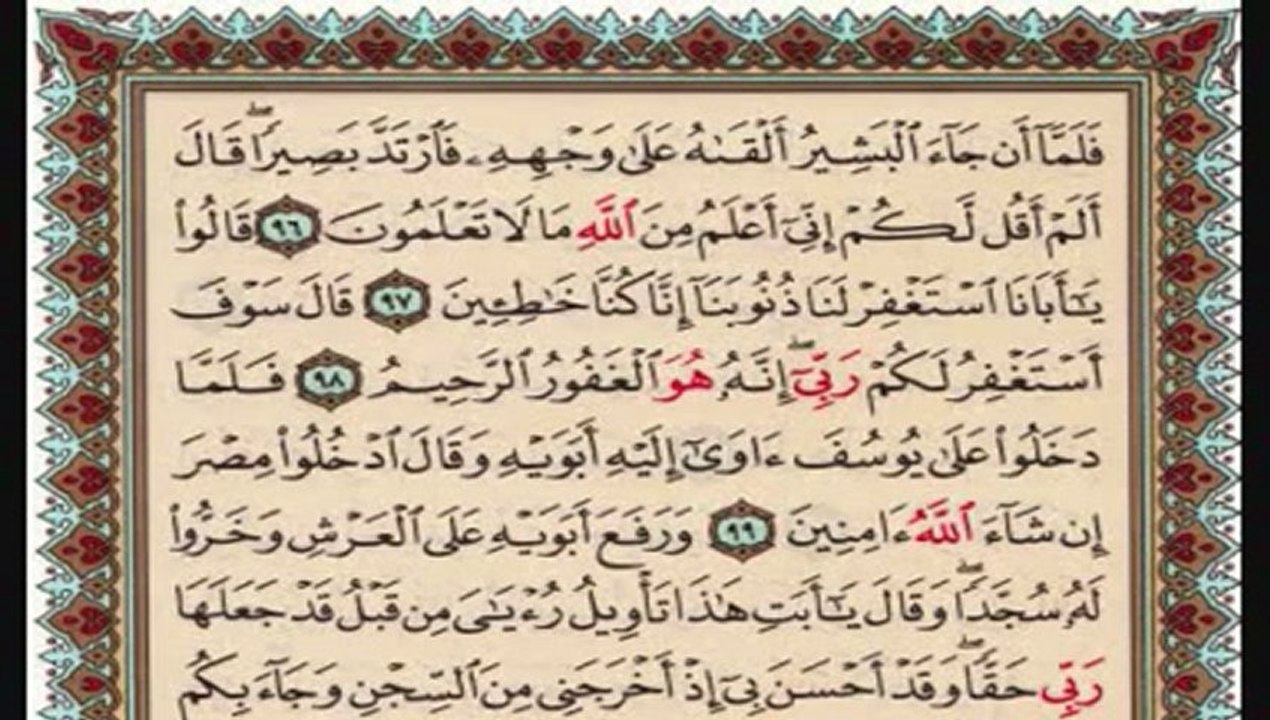 فَلَمَّآ أَن جَآءَ ٱلْبَشِيرُ أَلْقَىٰهُ عَلَىٰ وَجْهِهِۦ فَٱرْتَدَّ بَصِيرًاۖ قَالَ
أَلَمْ أَقُل لَّكُمْ إِنِّىٓ أَعْلَمُ مِنَ ٱللَّهِ مَا لَا تَعْلَمُونَ ٩٦ قَالُوا۟
يَـٰٓأَبَانَا ٱسْتَغْفِرْ لَنَا ذُنُوبَنَآ إِنَّا كُنَّا خَـٰطِـِٔينَ ٩٧ قَالَ سَوْفَ
أَسْتَغْفِرُ لَكُمْ رَبِّىٓۖ إِنَّهُۥ هُوَ ٱلْغَفُورُ ٱلرَّحِيمُ ٩٨ فَلَمَّا
دَخَلُوا۟ عَلَىٰ يُوسُفَ ءَاوَىٰٓ إِلَيْهِ أَبَوَيْهِ وَقَالَ ٱدْخُلُوا۟ مِصْرَ
إِن شَآءَ ٱللَّهُ ءَامِنِينَ ٩٩ وَرَفَعَ أَبَوَيْهِ عَلَى ٱلْعَرْشِ وَخَرُّوا۟
لَهُۥ سُجَّدًاۖ وَقَالَ يَـٰٓأَبَتِ هَـٰذَا تَأْوِيلُ رُءْيَـٰىَ مِن قَبْلُ قَدْ جَعَلَهَا
رَبِّى حَقًّاۖ وَقَدْ أَحْسَنَ بِىٓ إِذْ أَخْرَجَنِى مِنَ ٱلسِّجْنِ وَجَآءَ بِكُم